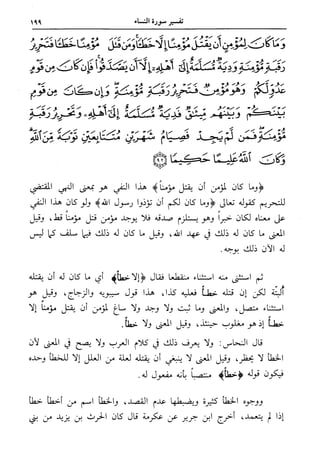 تفسير سورة النساء ١٩٩
وَمَا كَانَ لِمُؤْمِنٍ أَن يَقْتُلَ مُؤْمِنًا إِلَّا خَطَـًٔا وَمَن قَتَلَ مُؤْمِنًا خَطَـًٔا فَتَحْرِيرُ
رَقَبَةٍ مُّؤْمِنَةٍ وَدِيَةٌ مُّسَلَّمَةٌ إِلَىٰٓ أَهْلِهِۦٓ إِلَّآ أَن يَصَّدَّقُوا۟ فَإِن كَانَ مِن قَوْمٍ
عَدُوٍّ لَّكُمْ وَهُوَ مُؤْمِنٌ فَتَحْرِيرُ رَقَبَةٍ مُّؤْمِنَةٍ وَإِن كَانَ مِن قَوْمٍ
بَيْنَكُمْ وَبَيْنَهُم مِّيثَـٰقٌ فَدِيَةٌ مُّسَلَّمَةٌ إِلَىٰٓ أَهْلِهِۦ وَتَحْرِيرُ رَقَبَةٍ
مُّؤْمِنَةٍ فَمَن لَّمْ يَجِدْ فَصِيَامُ شَهْرَيْنِ مُتَتَابِعَيْنِ تَوْبَةً مِّنَ ٱللَّهِ
وَكَانَ ٱللَّهُ عَلِيمًا حَكِيمًا ٩٢
﴿وما كان لمؤمن أن يقتل مؤمناً﴾ هذا النفي هو بمعنى النهي المقتضي
للتحريم كقوله تعالى ﴿وما كان لكم أن تؤذوا رسول الله﴾ ولو كان هذا النفي
على معناه لكان خبراً وهو يستلزم صدقه فلا يوجد مؤمن قتل مؤمناً قط، وقيل
المعنى ما كان له ذلك في عهد الله، وقيل ما كان له ذلك فيما سلف كما ليس
له الآن ذلك بوجه.
ثم استثنى منه استثناء منقطعاً فقال ﴿إلا خطأ﴾ أي ما كان له أن يقتله
ألبتة لكن إن قتله خطأ فعليه كذا، هذا قول سيبويه والزجاج، وقيل هو
استثناء متصل، والمعنى وما ثبت ولا وجد ولا ساغ لمؤمن أن يقتل مؤمناً إلا
خطأ إذ هو مغلوب حينئذ، وقيل المعنى ولا خطأ.
قال النحاس: ولا يعرف ذلك في كلام العرب ولا يصح في المعنى لأن
الخطأ لا يحظر، وقيل المعنى لا ينبغي أن يقتله لعلة من العلل إلا للخطأ وحده
فيكون قوله ﴿خطأ﴾ منتصباً بأنه مفعول له.
ووجوه الخطأ كثيرة ويضبطها عدم القصد، والخطأ اسم من أخطأ خطأ
إذا لم يتعمد، أخرج ابن جرير عن عكرمة قال كان الحرث بن يزيد من بني